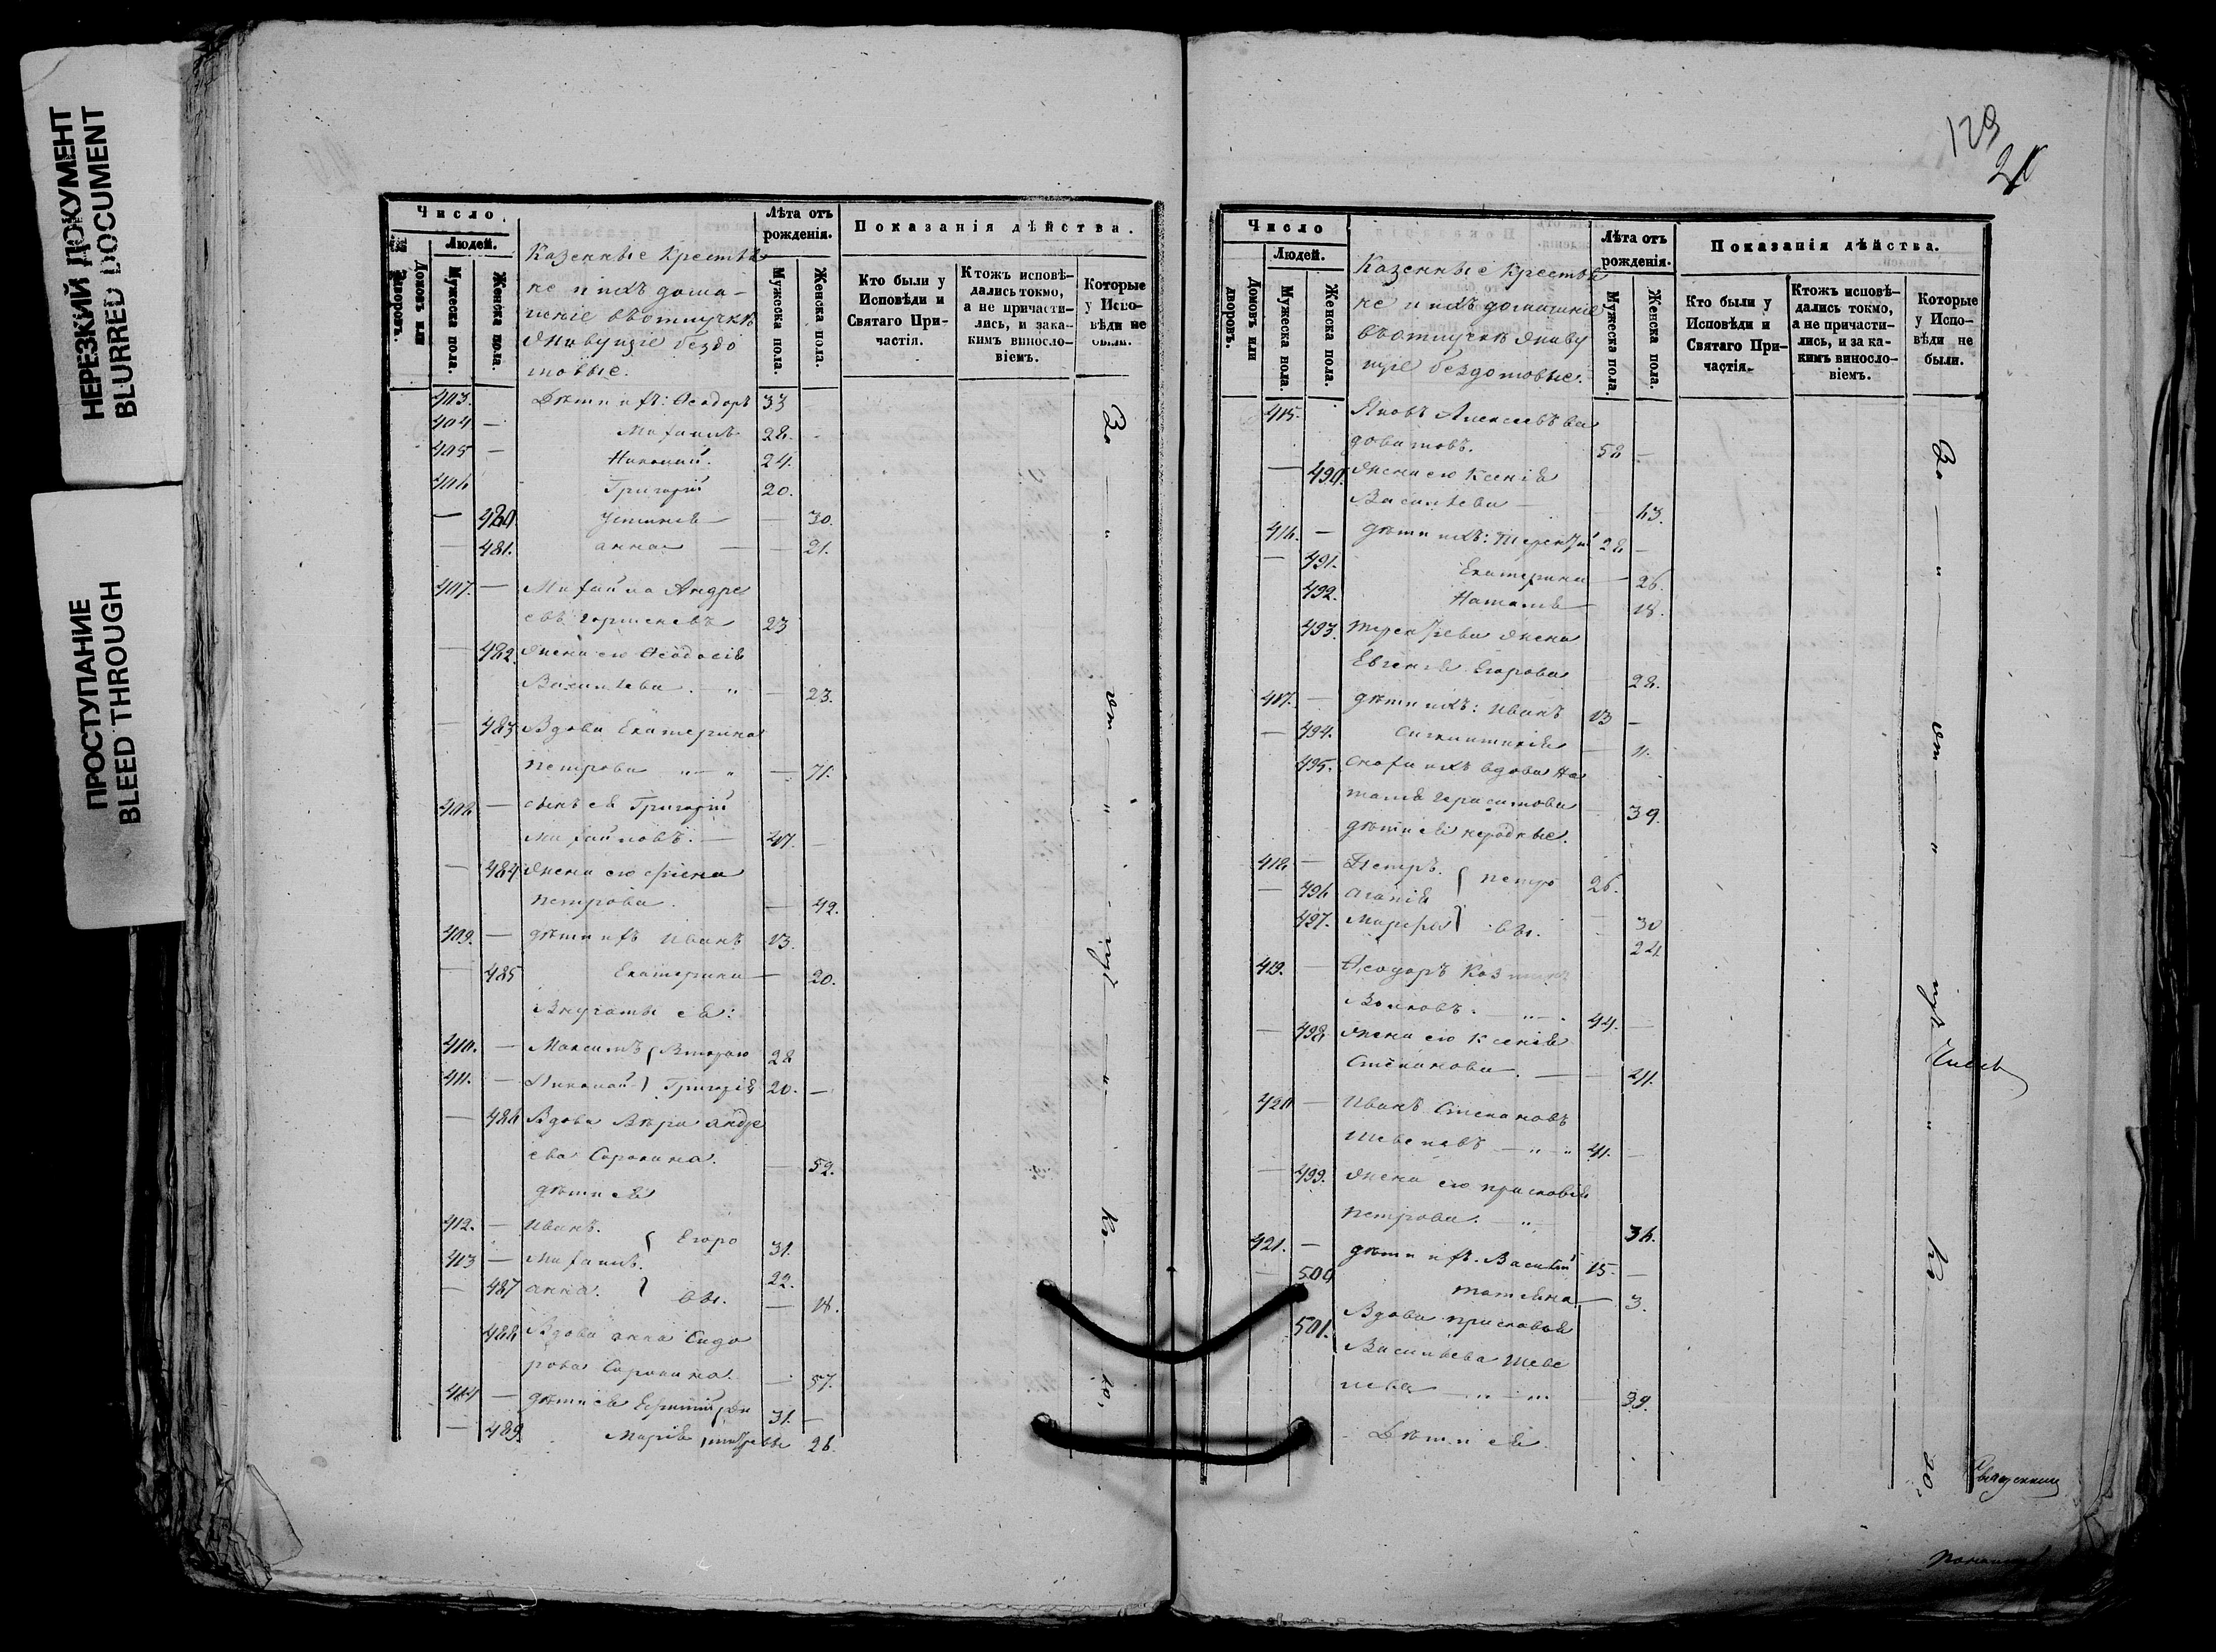 НЕРЕЗКИЙ ДОКУМЕНТ
BLURRED DOCUMENT
ПРОСТУПАНИЕ
BLEED THROUGH
Число
Людей.
Домовъ или дворовъ.
Мужеска пола.
Женска пола.
Казенные Крестья
не и ихъ дома-
шніе въ отлучкѣ
живущіе бездо
мовые.
Лѣта отъ рожденія.
Мужеска пола.
Женска пола.
Показанія дѣйства.
Кто были у Исповѣди и Святаго Причастія.
Ктожъ исповѣдались токмо, а не причастились, и закакимъ винословіемъ.
Которые у Исповѣди не были.
403. Дѣти ихъ: Ѳеодоръ 33
404 — Михаилъ 28.
405 — Николай. 24.
406 Григорій 20.
— 480 Устинія — 30.
— 481. Анна — — 21.
407. — Михаила Андре
евъ 23
— 482. Жена его Ѳеодосія
Васильева. — 23.
— 483 Вдова Екатерина
Петрова — 71.
408 — сынъ ея Григорій
Михайловъ. — 47. —
— 484 Жена его Ирина
Петрова. — 49.
409. — дѣти ихъ Иванъ 13.
— 485 Екатерина — 20.
Внучаты ея:
410. — Максимъ 28
411. — Николай Григорія 20. —
— 486 Вдова Вѣра Андре
ева Сорокина. — 52.
дѣти ея
412. — Иванъ. Егоро 31.
413 — Михаилъ. 22.
— 487 Анна. вы. — 18.
488 Вдова Анна Сидо
рова Сорокина. — 57.
414 — дѣти ея 31. —
— 489. Марія 26.
Во
от
Ко
129
Число
Людей.
Домовъ или дворовъ.
Мужеска пола.
Женска пола.
Казенные Крестья
не и ихъ домашніе
въ отлучкѣ живу
щіе бездомовые.
Лѣта отъ рожденія.
Мужеска пола.
Женска пола.
Показанія дѣйства.
Кто были у Исповѣди и Святаго Причастія.
Ктожъ исповѣдались токмо, а не причастились, и за какимъ винословіемъ.
Которые у Исповѣди не были.
415. Яковъ Алексѣевъ
58 —
— 490. Жена его Ксенія
Васильева — 63.
416. — дѣти ихъ: Терентій 28 —
— 491. Екатерина — 26.
492. Наталія — 18.
493. Терентьева жена
Евгенія Егорова 28.
417. — дѣти ихъ: Иванъ 13 —
— 494. — 11.
495. Сноха ихъ вдова На
талія Герасимова 39.
дѣти ея неродные.
418 — Петръ. Петро 26.
— 496 Агапія 30
497. Марѳа вы. 24
419. — Ѳеодоръ
Волковъ. — 44. —
— 498 Жена его Ксенія
Степанова. — 41.
420 — Иванъ Степановъ
41. —
— 499. Жена его Прасковія
Петрова. 36.
421. — дѣти ихъ. Василій 15. —
— 500 Татьяна — 3.
501. Вдова Прасковья
Васильева
39.
Дѣти ея.
Во
от
Ко
Священникъ